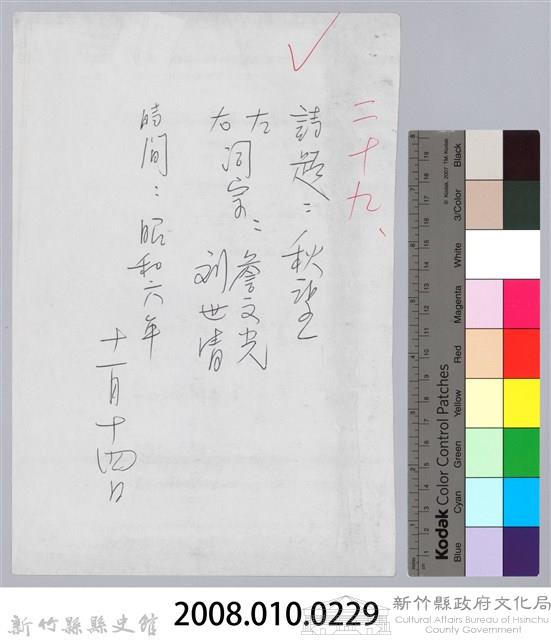 二十九、
詩題：秋望
左詞宗：詹文光
右　　　劉世清
時間：昭和六年
十一月十四日
Black
3/Color
White
Magenta
Red
Yellow
Green
Cyan
Blue
Kodak Color Control Patches
© Kodak, 2007 TM: Kodak
新竹縣縣史館
2008.010.0229
新竹縣政府文化局
Cultural Affairs Bureau of Hsinchu
County Government